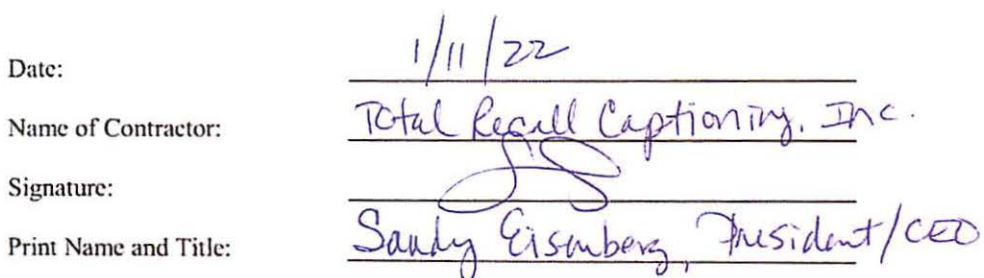 Date: 1/11/22
Name of Contractor: Total Recall Captioning, Inc.
Signature:
Print Name and Title: Sandy Eisenberg, President/CEO